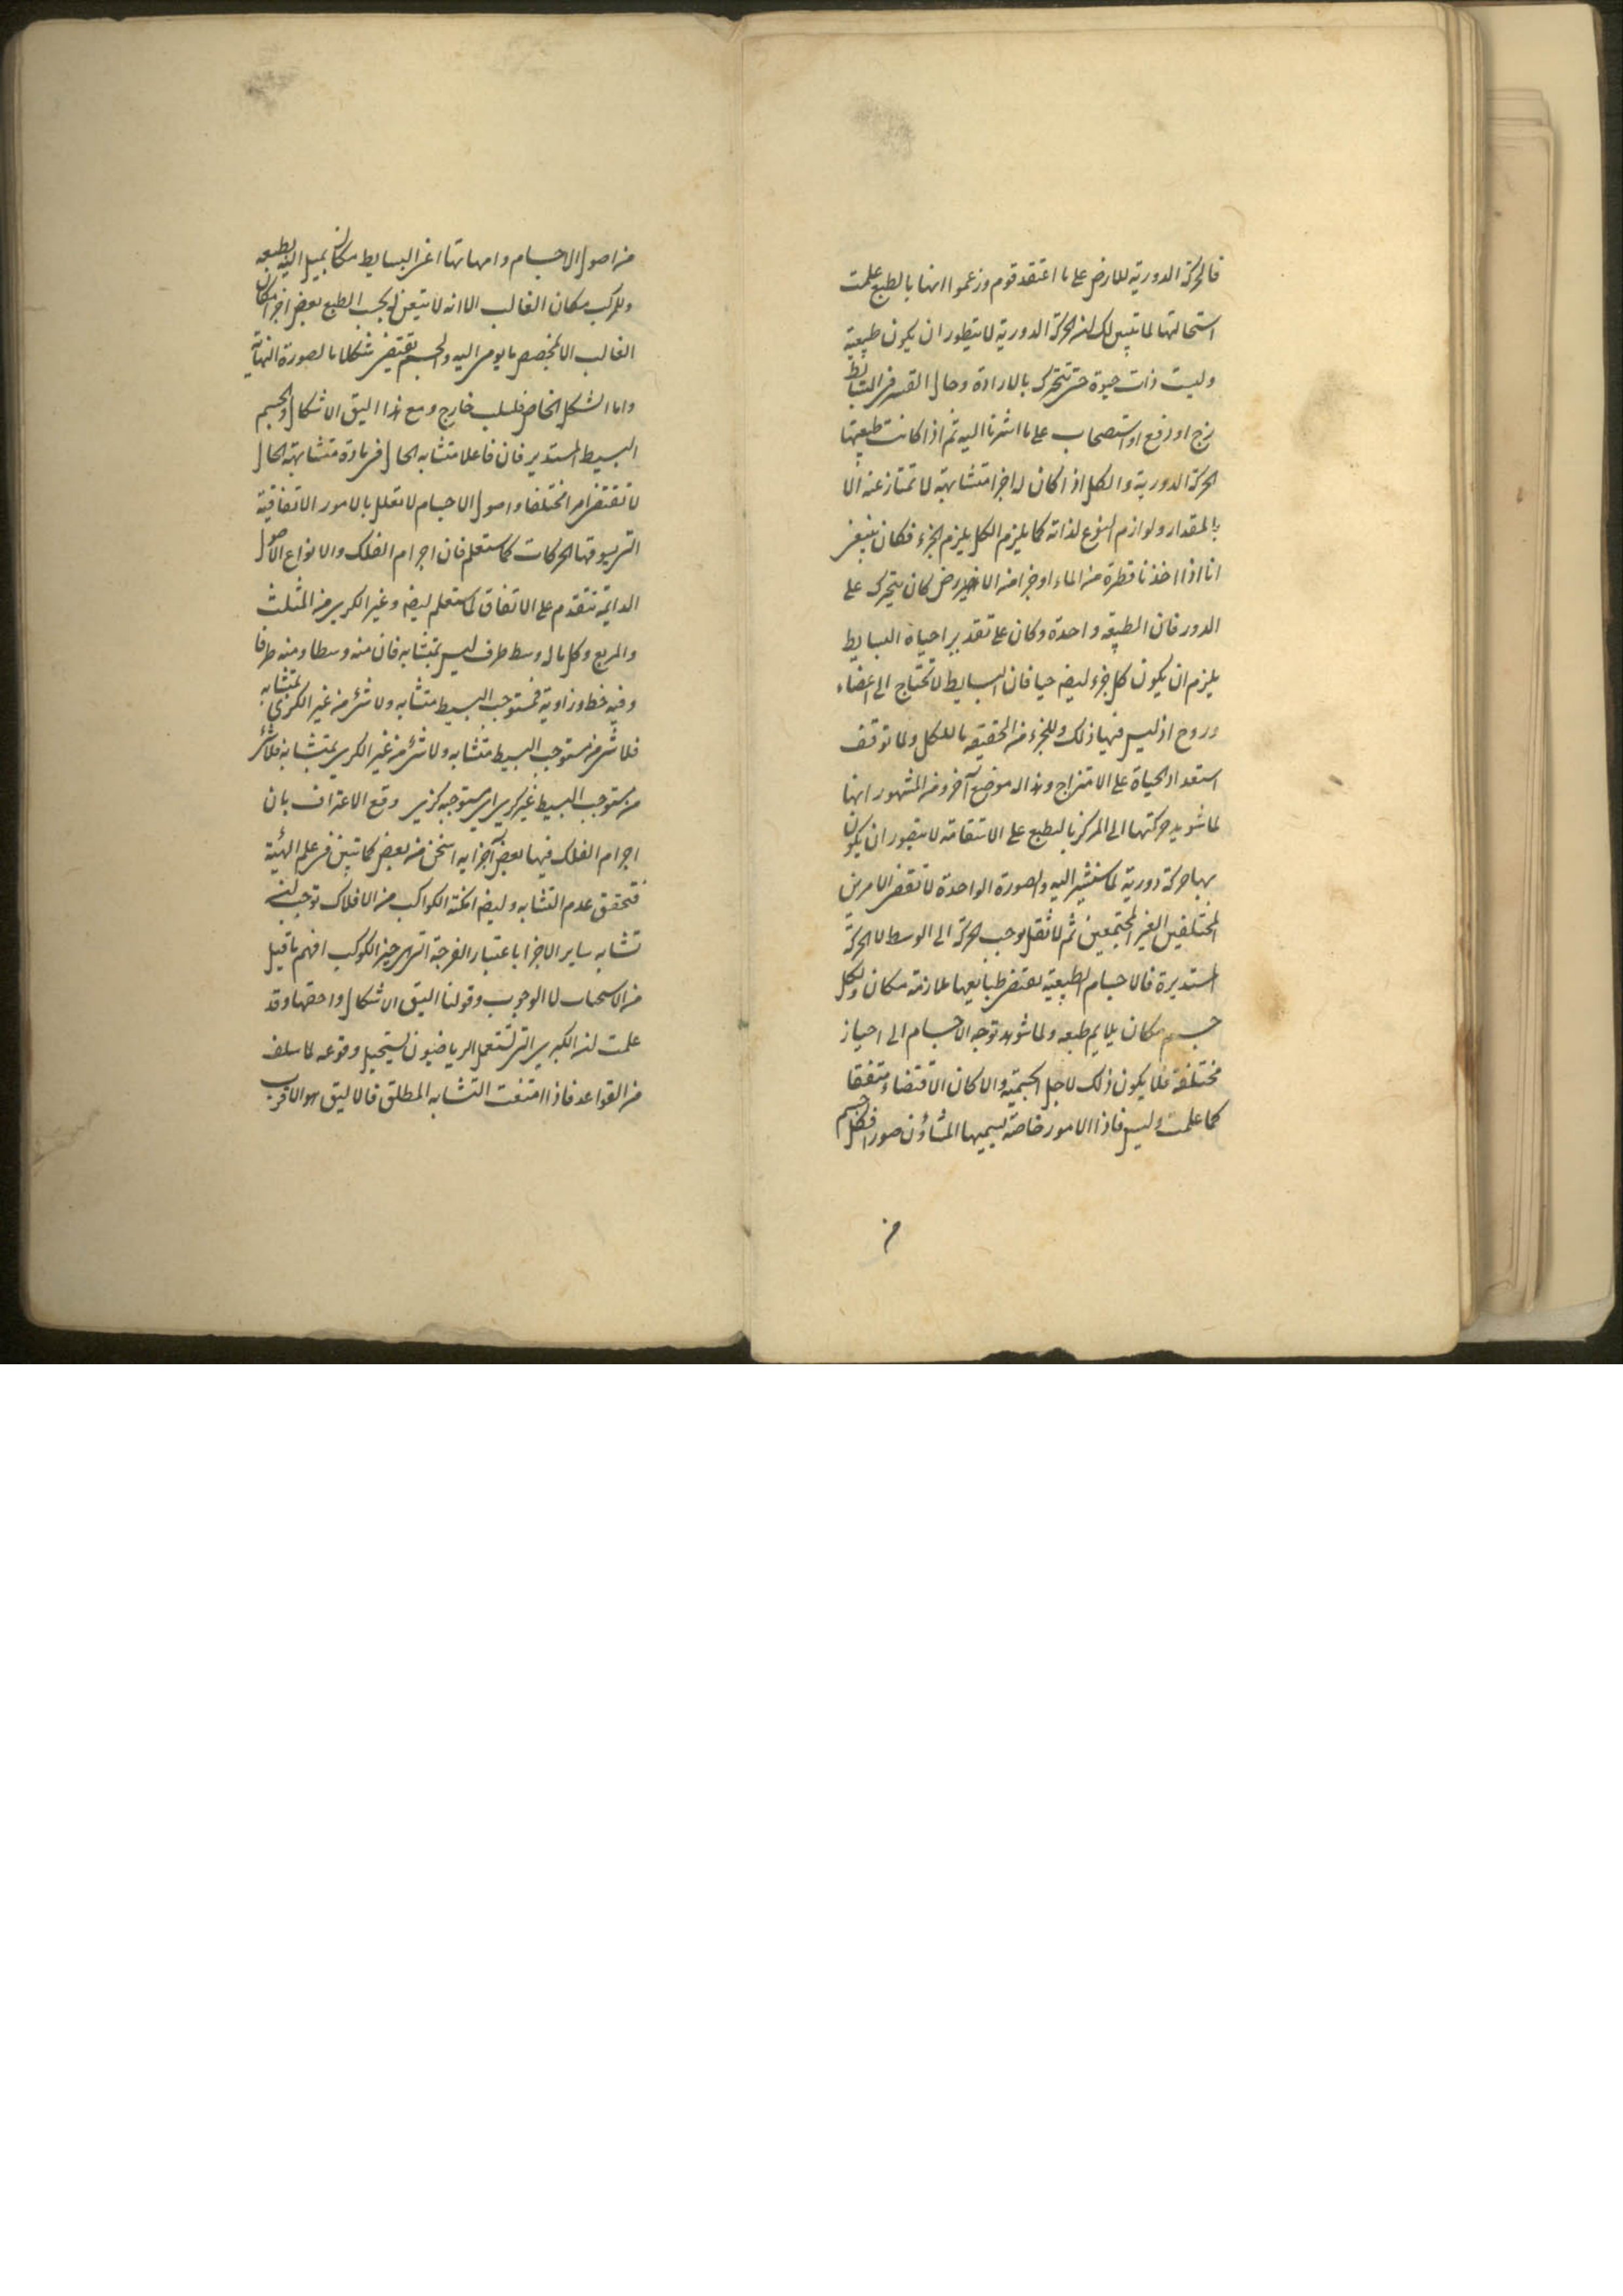 فالحركة الدورية للارض على ما اعتقد قوم وزعموا انها بالطبع علمت
استحالتها لما تبين لك ان الحركة الدورية لا يتطور ان يكون طبيعية
وليست ذات حيوة حتى تتحرك بالارادة وحال القسر فى البسائط
زج او رفع او استصحاب على ما اشرنا اليه ثم اذا كانت طبيعتها
الحركة الدورية والكل اذا كان له اجزا متشابهة لا تمتاز عنه الا
بالمقدار ولوازم النوع لذاته كما يلزم الكل يلزم الجزء فكان ينبغى
انا اذا اخذنا قطرة من الماء او جزا من الارض كان يتحرك على
الدور فان الطبيعة واحدة وكان على تقدير احياة البسايط
يلزم ان يكون كل جزء ايضا حيا فان البسايط لا تحتاج الى اعضاء
وروح اذ ليس فيها ذلك وللجزء من الحقيقة ما للكل ولما توقف
استعداد الحياة على الامتزاج وهذا له موضع آخر ومن المشهور انها
لما شوهد حركتها الى المركز بالطبع على الاستقامة لا يتصور ان يكون
بها حركة دورية لما سنشير اليه والصورة الواحدة لا تقتضى الامرين
المختلفين الغير المجتمعين ثم لا ثقل يوجب الحركة الى الوسط لا الحركة
المستديرة فالاجسام الطبيعية تقتضى طبايعها ملازمة مكان ولكل
جسم مكان يلايم طبعه ولما شوهد توجه الاجسام الى احياز
مختلفة فلا يكون ذلك لاجل الجسمية والا كان الاقتضاء متفقا
كما علمت وليس فاذا الامور خاصة يسميها المشاؤن صورا فكل جسم
من
من اصول الاجسام وامهاتها اعنى البسايط مكان يميل اليه بطبعه
وللمركب مكان الغالب الا انه لا يتعين له بحسب الطبع بعض اجزا مكان
الغالب الا لمخصص ما يومى اليه والجسم يقتضى شكلا ما لصورة النهاية
واما الشكل الخاص فلسبب خارج ومع هذا اليق الاشكال والجسم
البسيط المستدير فان فاعلا متشابه الحال فى مادة متشابهة الحال
لا تقتضى امرا مختلفا واصول الاجسام لا تعلل بالامور الاتفاقية
التى يسوقها الحركات كما ستعلم فان اجرام الفلك والانواع الاصول
الدايمة تتقدم على الاتفاق كما ستعلم ايضا وغير الكرى من المثلث
والمربع وكل ما له وسط طرف ليس بمتشابه فان منه وسطا ومنه طرفا
وفيه خط وزاوية فمستوجب البسيط متشابه ولا شئ من غير الكرى بمتشابه
فلا شئ من مستوجب البسيط متشابه ولا شئ من غير الكرى بمتشابه فلا شئ
من مستوجب البسيط غير كرى اى مستوجبه كرى وقع الاعتراف بان
اجرام الفلك فيها بعض اجزايه اسخن من بعض كما تبين فى علم الهيئة
فتحقق عدم التشابه وايضا امكنة الكواكب من الافلاك توجب
تشابه ساير الاجزا باعتبار الفرجة التى هى حيز الكوكب افهم ما قيل
من الاستحباب لا الوجوب وقولنا اليق الاشكال واحقها وقد
علمت ان الكبرى التى تستعمل الرياضيون يستحيل وقوعه لما سلف
من القواعد فاذا امتنعت التشابه المطلق فالاليق هو الاقرب